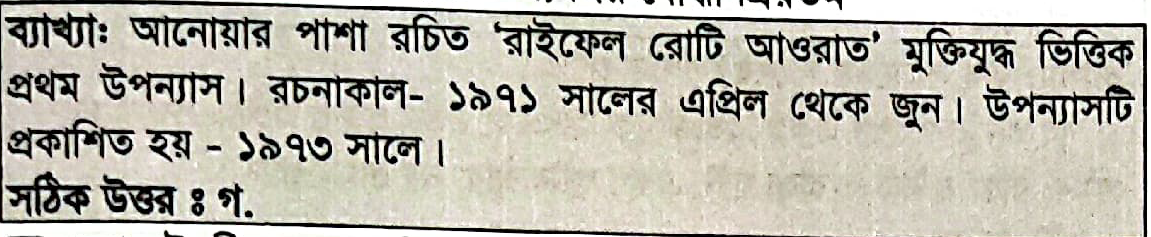 ব্যাখ্যাঃ আনোয়ার পাশা রচিত 'রাইফেল রোটি আওরাত' মুক্তিযুদ্ধ ভিত্তিক
প্রথম উপন্যাস। রচনাকাল- ১৯৭১ সালের এপ্রিল থেকে জুন। উপন্যাসটি
প্রকাশিত হয় - ১৯৭৩ সালে।
সঠিক উত্তর ঃ গ.